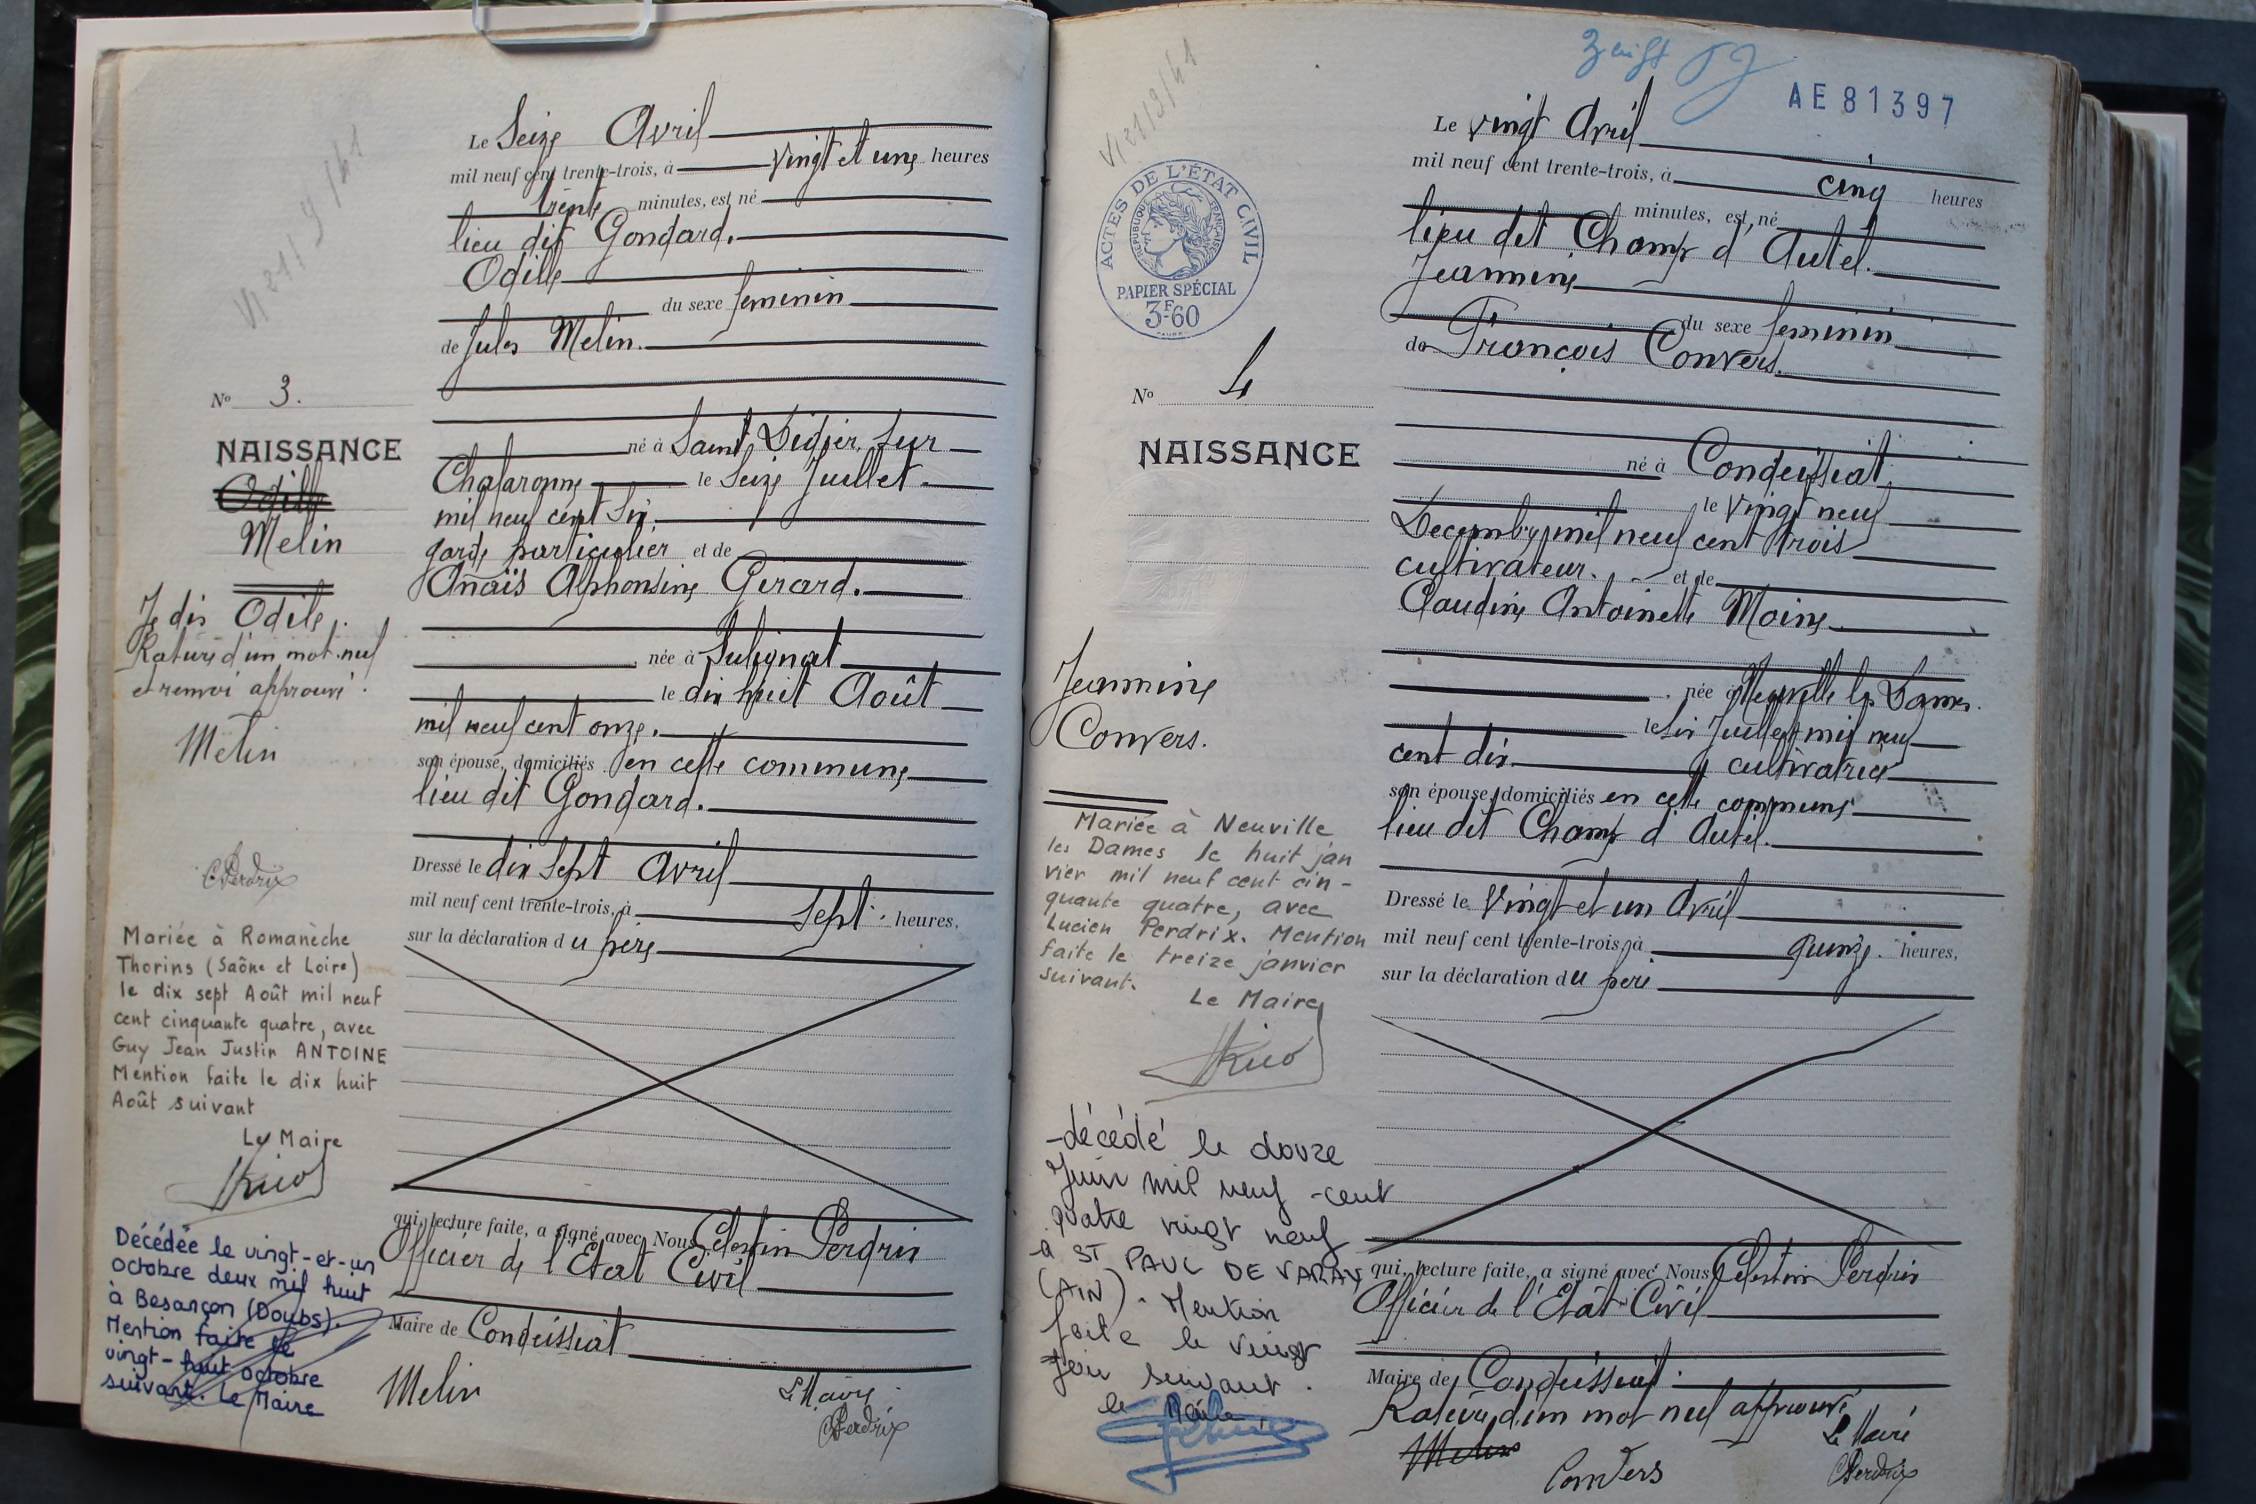 Le Seize Avril
mil neuf cent trente-trois, à vingt et une heures
trente minutes, est né
lieu dit Gondard.
Odille
du sexe feminin
de Jules Melin.
né à Saint Didier sur
Chalaronne le Seize Juillet
mil neuf cent Six.
garde particulier et de
Anaïs Alphonsine Girard.
née à Sulignat
le dix huit Août
mil neuf cent onze.
son épouse, domiciliés en cette commune
lieu dit Gondard.
Dressé le dix sept Avril
mil neuf cent trente-trois, à sept heures,
sur la déclaration du père
qui, lecture faite, a signé avec Nous Célestin Perdrix
Officier de l'Etat Civil
Maire de Condeissiat
Melin
Le Maire
CPerdrix
No 3.
NAISSANCE
Odille
Melin
Je dis Odile.
Rature d'un mot nul
et renvoi approuvé.
Melin
CPerdrix
Mariée à Romanèche
Thorins (Saône et Loire)
le dix sept Août mil neuf
cent cinquante quatre, avec
Guy Jean Justin ANTOINE
Mention faite le dix huit
Août suivant
Le Maire
Décédée le vingt-et-un
octobre deux mil huit
à Besançon (Doubs).
Mention faite le
vingt-huit octobre
suivant. Le Maire
AE81397
Le vingt Avril
mil neuf cent trente-trois, à cinq heures
minutes, est né
lieu dit Champ d'Autel.
Jeannine
du sexe feminin
de François Convers.
né à Condeissiat
le vingt neuf
Decembre mil neuf cent trois
cultivateur. et de
Claudine Antoinette Moine
née à Neuville les Dames.
le six Juillet mil neuf
cent dix cultivatrice
son épouse, domiciliés en cette commune
lieu dit Champ d'Autel.
Dressé le vingt et un Avril
mil neuf cent trente-trois, à quinze heures,
sur la déclaration du père
qui, lecture faite, a signé avec Nous Célestin Perdrix
Officier de l'Etat Civil
Maire de Condeissiat.
Rature d'un mot nul approuvé
Melin
Convers
Le Maire
CPerdrix
ACTES DE L'ÉTAT CIVIL
RÉPUBLIQUE FRANÇAISE
PAPIER SPÉCIAL
3F60
No 4
NAISSANCE
Jeannine
Convers.
Mariée à Neuville
les Dames le huit jan
vier mil neuf cent cin-
quante quatre, avec
Lucien Perdrix. Mention
faite le treize janvier
suivant.
Le Maire
-décédé le douze
Juin mil neuf-cent
quatre vingt neuf
à ST PAUL DE VARAX
(AIN). Mention
faite le vingt
Juin suivant.
le Maire,